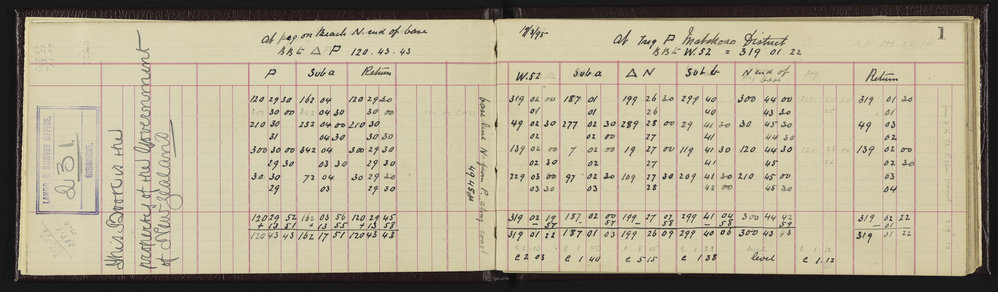 LANDS & SURVEY OFFICE,
231
GISBORNE
This Book is the
property of the Government
of New Zealand
At peg on Beach N. end of base
BB to △ P 120.43.43
P Sub a Return
120 29 30 162 04 120 29 30
30 00 04 30 30 00
210 30 252 04 00 210 30
31 04 30 30 30
300 30 00 342 04 300 29 30
29 30 03 30 29 30
30 30 72 04 30 29 30
29 03 29 30
120 29 52 162 03 56 120 29 45
+ 13 51 + 13 55 + 13 58
120 43 43 162 17 51 120 43 43
base line N. from P. along coast
1
At Trig P District
BB to W.52 = 319 01 22
W.52 Sub a △ N Sub b N end of base Return
319 02 00 187 01 199 26 30 299 40 300 44 00 319 01 30
01 01 26 40 43 30 01
49 02 30 277 02 30 289 28 00 29 41 30 30 45 30 49 03
02 02 00 27 41 44 30 02
139 02 00 7 02 00 19 27 00 119 41 30 120 44 30 139 02 00
02 30 02 27 41 45 02 30
229 03 00 97 02 30 109 27 30 209 41 30 210 45 00 03
03 30 03 28 42 00 45 30 04
319 02 19 187 02 00 199 27 07 299 41 04 300 44 42 319 02 22
- 57 - 57 - 58 - 58 - 59 - 01
319 01 22 187 01 03 199 26 09 299 40 06 300 43 43 319 01 22
E 2 03 E 1 40 E 5 15 E 1 38 level E 1.12